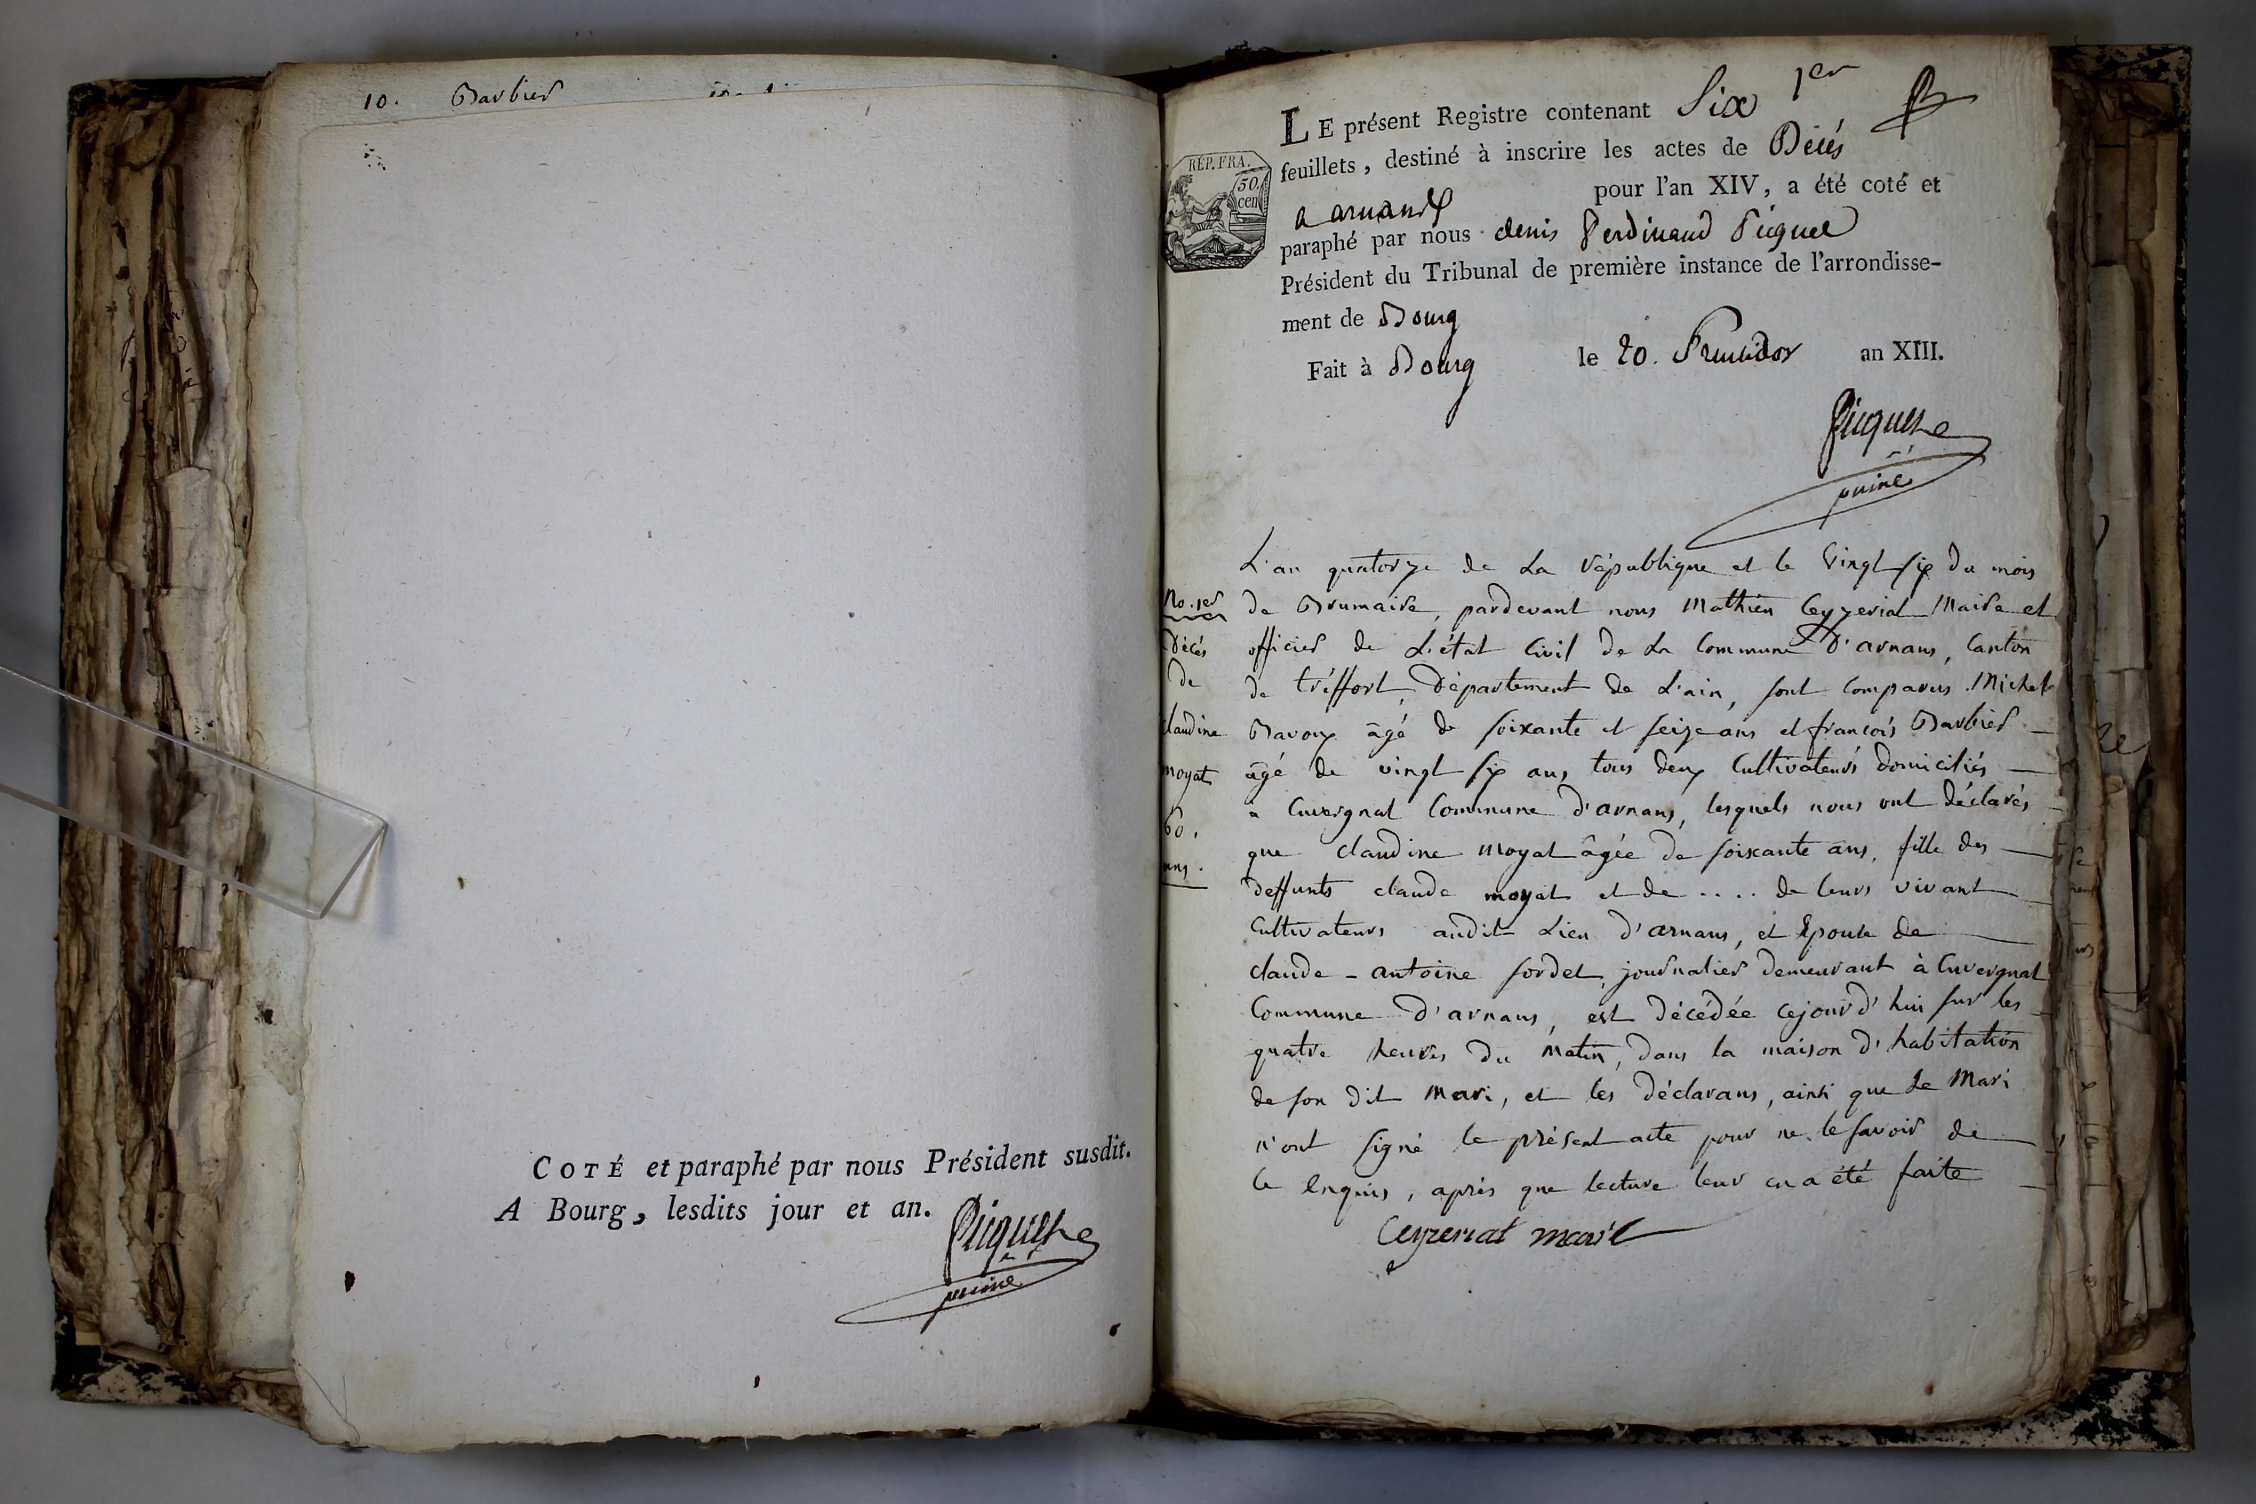 10. Barbier
COTÉ et paraphé par nous Président susdit.
A Bourg, lesdits jour et an.
Picquet
puiné
1er
LE présent Registre contenant Six
feuillets, destiné à inscrire les actes de Décés
a arnans pour l'an XIV, a été coté et
paraphé par nous denis Ferdinand Picquet
Président du Tribunal de première instance de l'arrondisse-
ment de Bourg
Fait à Bourg le 20. Fructidor an XIII.
RÉP. FRA.
50
cen
Picquet
puiné
No. 1er
Décés
de
claudine
moyat
60.
ans.
L'an quatorze de La République et le vingt six du mois
de Brumaire, pardevant nous Mathieu Ceyzeriat Maire et
officier de L'état Civil de La Commune D'arnans, Canton
de tréffort, Département de L'ain, sont Comparus Michel
Bavoux âgé de soixante et seize ans et francois Barbier
âgé de vingt six ans, tous deux Cultivateurs domiciliés
a Cuvergnat Commune d'arnans, lesquels nous ont déclarés
que claudine moyat âgée de soixante ans, fille des
deffunts claude moyat et de .... de leurs vivant
Cultivateurs audit Lieu d'arnans, et Epouse de
claude-antoine sordet, journalier demeurant à Cuvergnat
Commune d'arnans, est décédée cejourd'hui sur les
quatre heures du Matin, dans la maison d'habitation
de son dit Mari, et les déclarans, ainsi que Le Mari
n'ont signé le présent acte pour ne le savoir de
ce Enquis, après que lecture leur en a été faite
Ceyzeriat maire